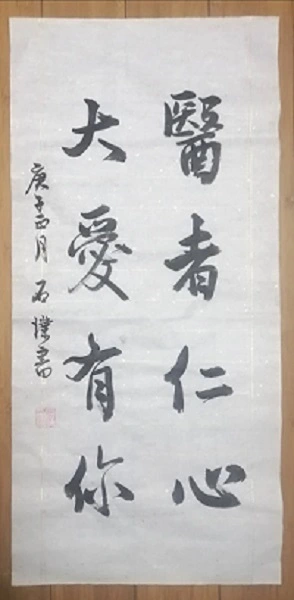 醫者仁心
大愛有你
庚子正月 石樸書